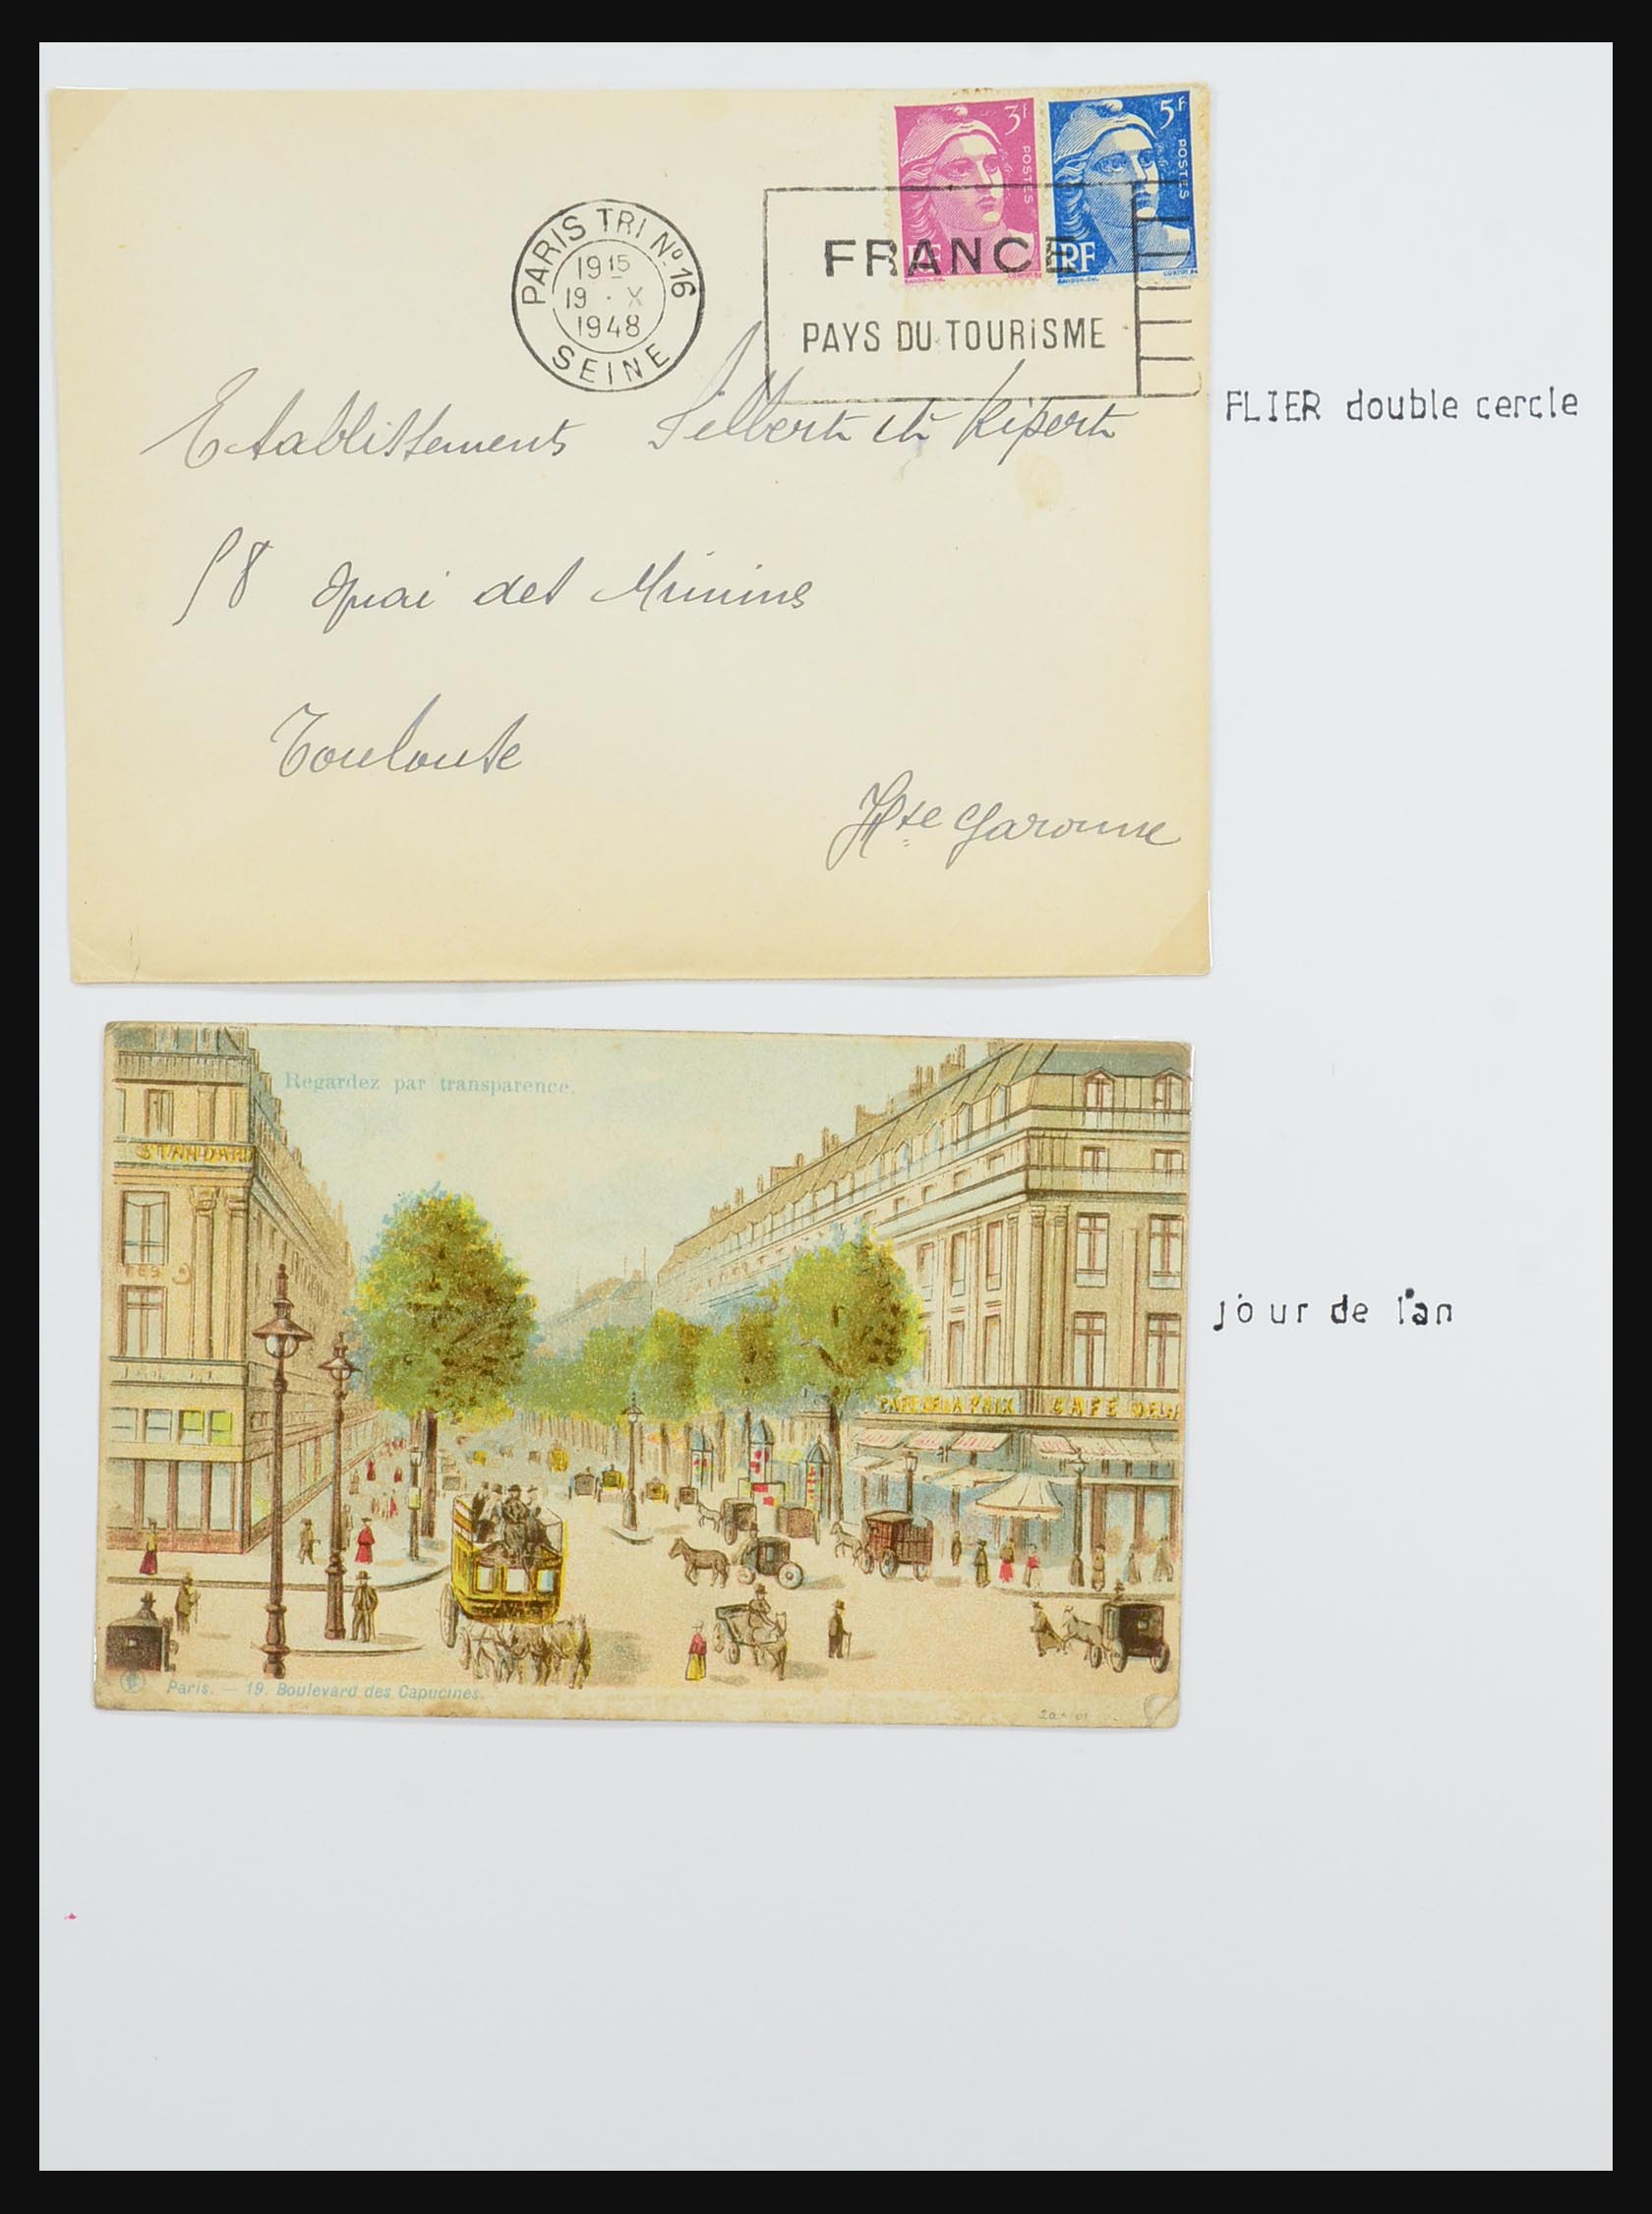 3f
POSTES
RF
5f
POSTES
RF
PARIS TRI Nº 16
19 15
19 · X
1948
SEINE
FRANCE
PAYS DU TOURiSME
Etablissements et Ripert
58 Quai des Minimes
Toulouse
Hte Garonne
FLIER double cercle
Regardez par transparence.
STANDARD
CAFE DE LA PAIX CAFÉ DE LA
Paris. — 19. Boulevard des Capucines.
jour de l'an